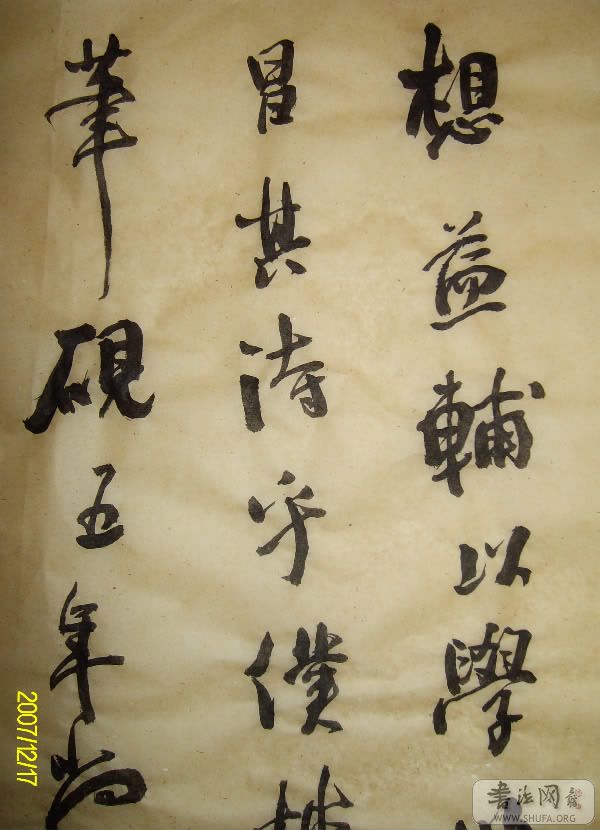 想益輔以學
昌其詩乎僕
筆硯五年尚
2007/12/17
书法网
WWW.SHUFA.ORG